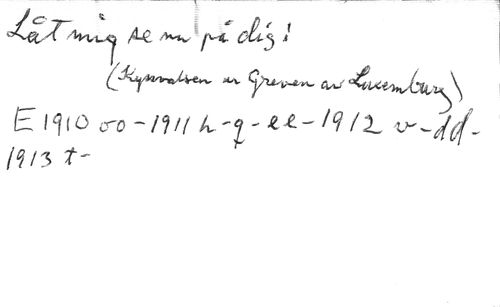 Låt mig se nu på dig!
(Kyssvalsen ur Greven av Luxemburg)
E 1910 oo - 1911 h - q - ee - 1912 v - dd -
1913 t -